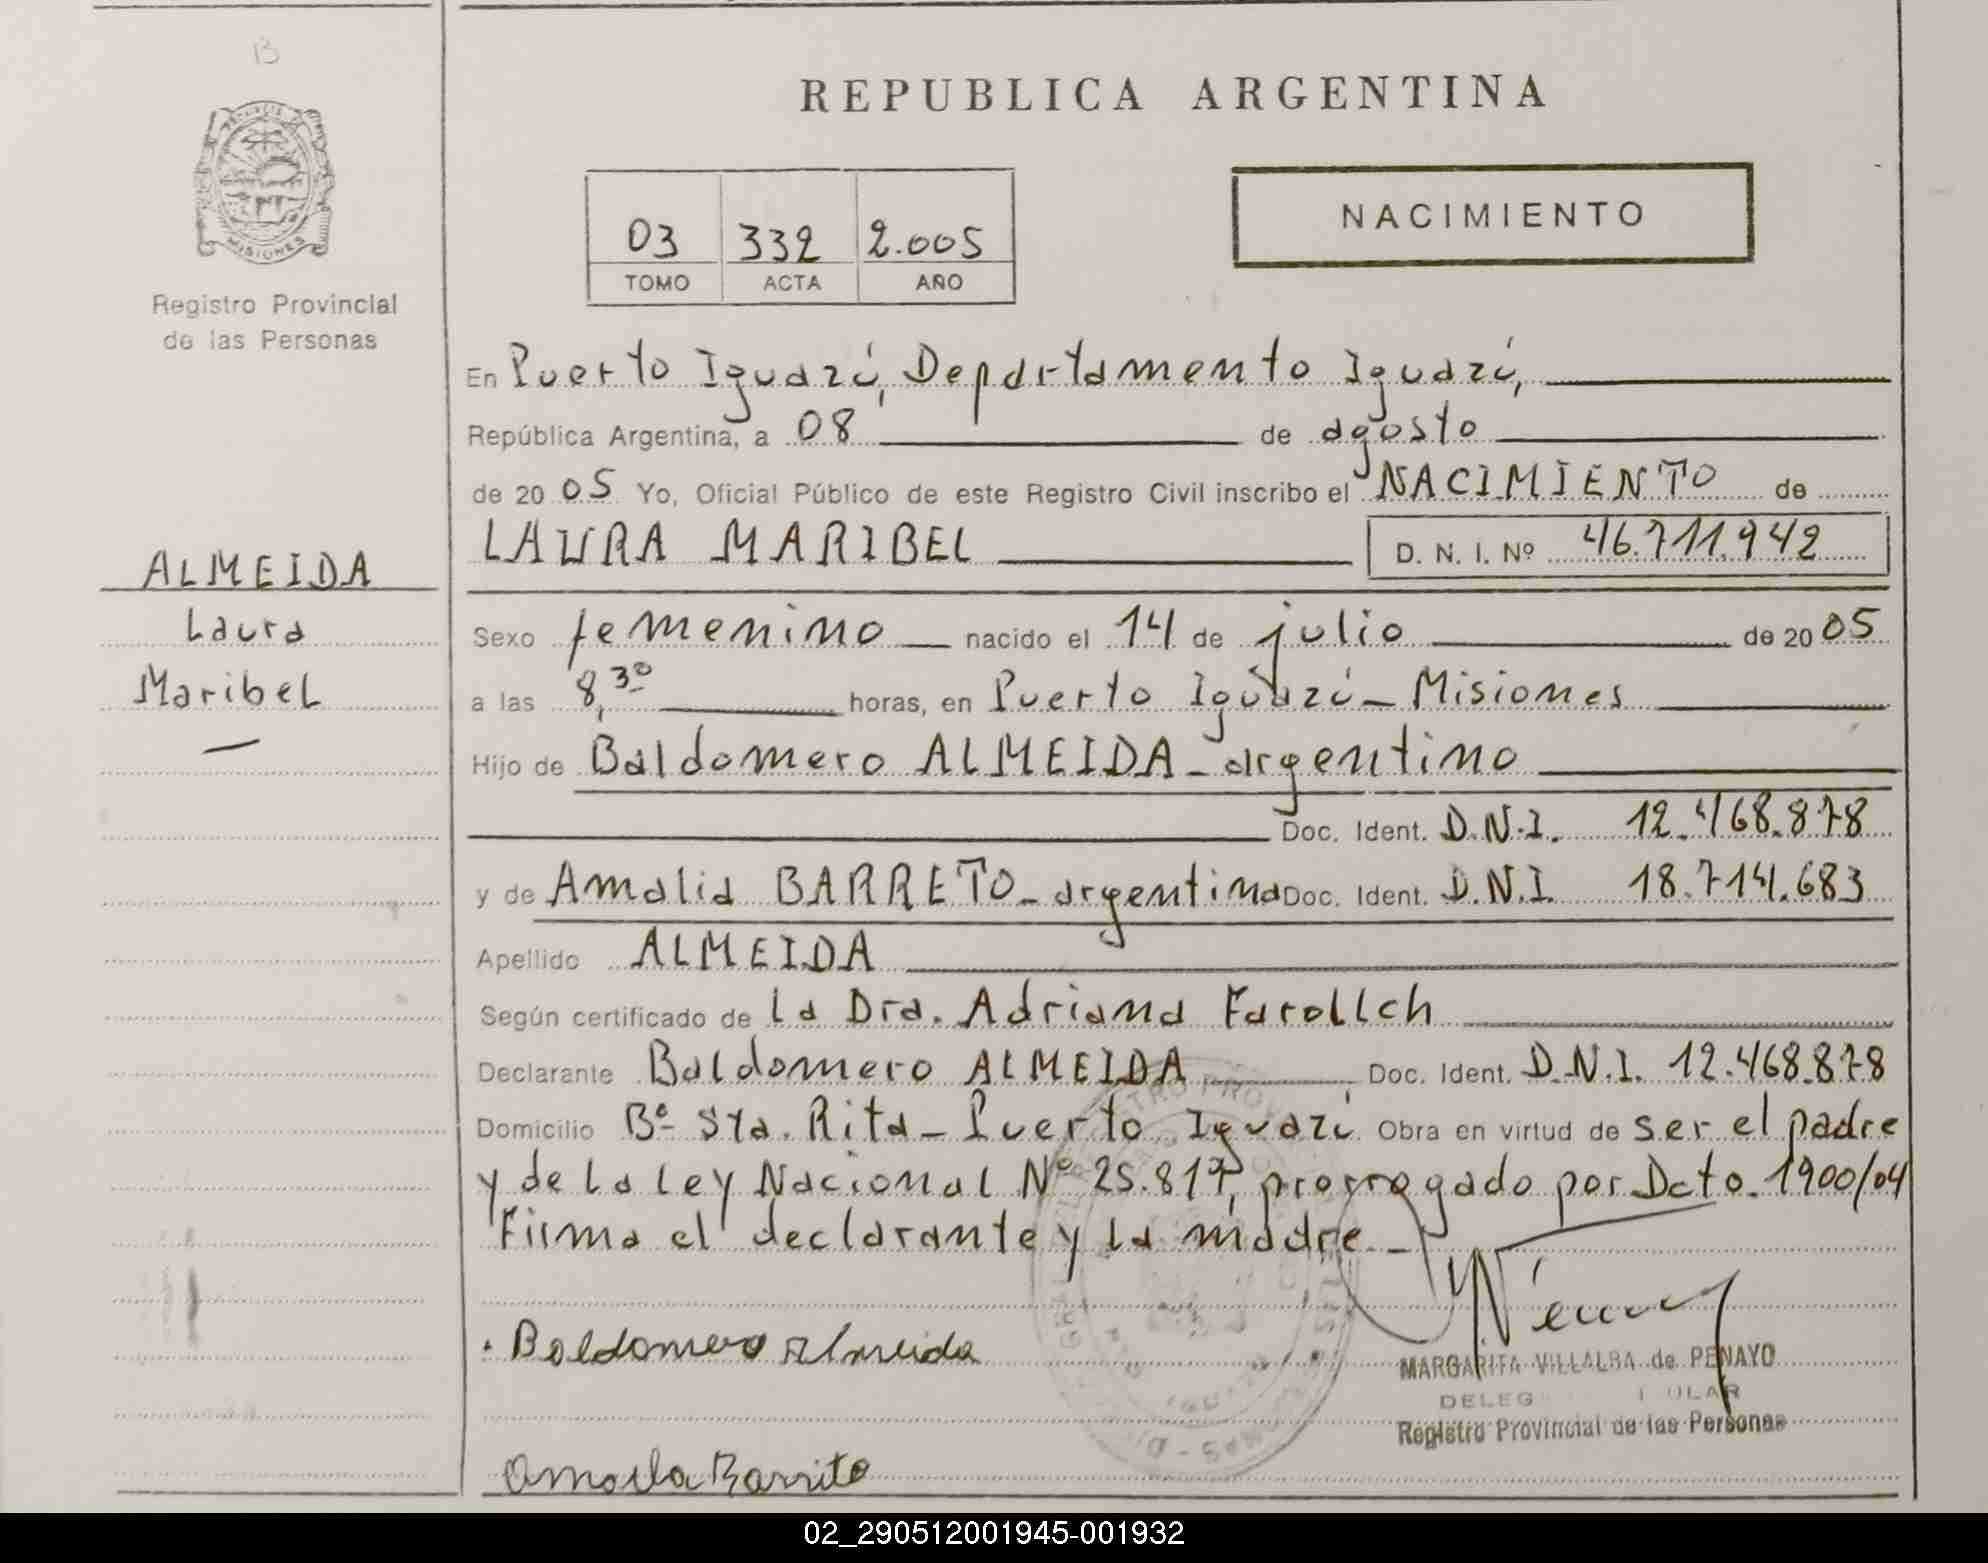 13
PROVINCIA
MISIONES
Registro Provincial
de las Personas
ALMEIDA
Laura
Maribel
REPUBLICA ARGENTINA
NACIMIENTO
03 332 2.005
TOMO ACTA AÑO
En Puerto Iguazú, Departamento Iguazú,
República Argentina, a 08 de agosto
de 2005 Yo, Oficial Público de este Registro Civil inscribo el NACIMIENTO de
LAURA MARIBEL D. N. I. Nº 46.711.942
Sexo femenino nacido el 14 de julio de 2005
a las 8,30 horas, en Puerto Iguazú - Misiones
Hijo de Baldomero ALMEIDA - argentino
Doc. Ident. D.N.I. 12.468.878
y de Amalia BARRETO - argentina Doc. Ident. D.N.I. 18.714.683
Apellido ALMEIDA
Según certificado de La Dra. Adriana Farollch
Declarante Baldomero ALMEIDA Doc. Ident. D.N.I. 12.468.878
Domicilio Bº Sta. Rita - Puerto Iguazú Obra en virtud de ser el padre
y de la ley Nacional Nº 25.819, prorrogado por Dcto. 1900/04
Firma el declarante y la madre.-
Baldomero Almeida
MARGARITA VILLALBA de PENAYO
Registro Provincial de las Personas
02_290512001945-001932